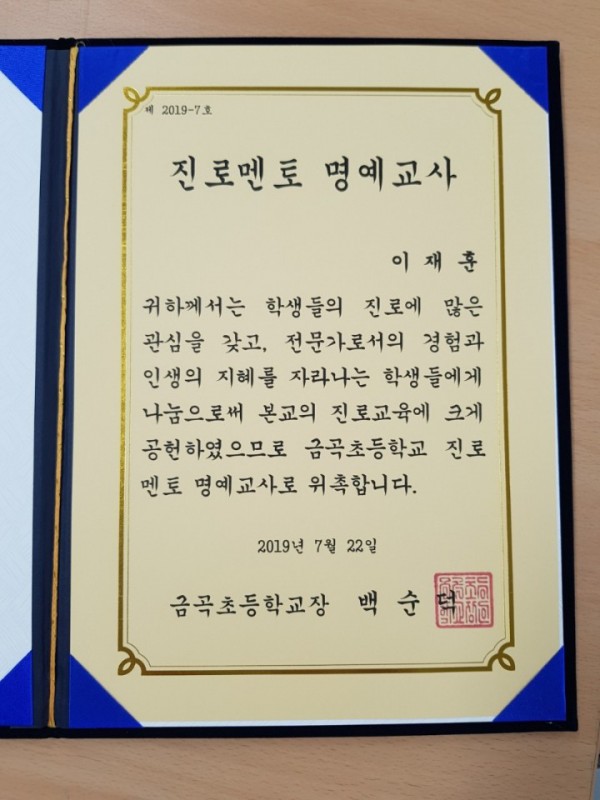 제 2019-7호
진로멘토 명예교사
이재훈
귀하께서는 학생들의 진로에 많은
관심을 갖고, 전문가로서의 경험과
인생의 지혜를 자라나는 학생들에게
나눔으로써 본교의 진로교육에 크게
공헌하였으므로 금곡초등학교 진로
멘토 명예교사로 위촉합니다.
2019년 7월 22일
금곡초등학교장 백순덕